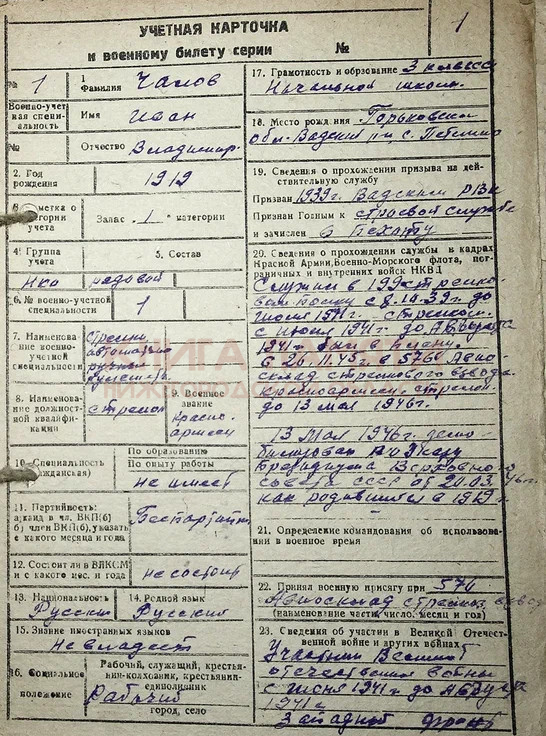 1
УЧЕТНАЯ КАРТОЧКА
к военному билету серии №
№ 1
Военно-учетная специальность
№
1
Фамилия Чалов
Имя Иван
Отчество Владимир.
2. Год рождения 1919
3. Отметка о категории учета
Запас 1 категории
4. Группа учета
5. Состав
рядовой
6. № военно-учетной специальности 1
7. Наименование военно-учетной специальности
Стрелки,
8. Наименование должностной квалификации
стрелок
9. Военное звание
Красноармеец
10. Специальность (гражданская)
По образованию
По опыту работы
не имеет
11. Партийность:
а) канд. в чл. ВКП(б)
б) член ВКП(б), указать
с какого месяца и года
Беспартийн
12. Состоит ли в ВЛКСМ
и с какого мес. и года
не состоит
13. Национальность
Русский
14. Родной язык
Русский
15. Знание иностранных языков
Не владеет
16. Социальное положение
Рабочий, служащий, крестьянин-колхозник, крестьянин-единоличник
Рабочий
город, село
17. Грамотность и образование 3 класса
Начальной школы
18. Место рождения Горьковская
обл. Вадский с.
19. Сведения о прохождении призыва на действительную службу
Призван 1939г. Вадским РВК
Признан Годным к строевой службе
и зачислен в Пехоту
20. Сведения о прохождении службы в кадрах
Красной Армии, Военно-Морского флота, пограничных и внутренних войск НКВД
Служил в стрелковом полку с 8.10.39г. до
июля 1941г. стрелком.
с июля 1941г. до
1941г. был в плену.
с 26.11.45 в 576
склад стрелкового взвода
красноармеец, стрелок.
до 13 мая 1946г.
13 Мая 1946г. демобилизован
Президиума Верховного
Совета СССР от 20.03.46г.
как родившийся в 1919г.
21. Определение командования об использовании в военное время
22. Принял военную присягу при 576
склад взвод
(наименование части, число, месяц и год)
23. Сведения об участии в Великой Отечественной войне и других войнах
Участник Великой
отечественной войны
с июля 1941г. до Августа
1941г.
Западный фронт